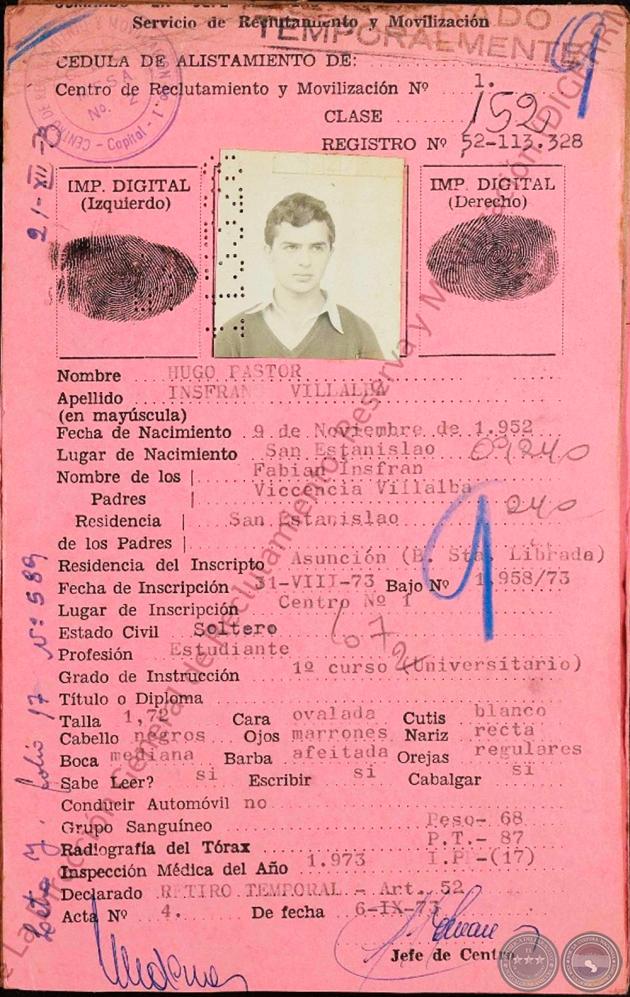 Servicio de Reclutamiento y Movilización
TEMPORALMENTE
CEDULA DE ALISTAMIENTO DE:
Centro de Reclutamiento y Movilización Nº 1.
CLASE 1520
REGISTRO Nº 52-113.328
21-XII-73
IMP. DIGITAL
(Izquierdo)
IMP. DIGITAL
(Derecho)
Nombre HUGO PASTOR
Apellido INSFRAN VILLALBA
(en mayúscula)
Fecha de Nacimiento 9 de Noviembre de 1.952
Lugar de Nacimiento San Estanislao 09240
Nombre de los Fabian Insfran
Padres Viccencia Villalba
240
Residencia San Estanislao
de los Padres
Residencia del Inscripto Asunción (B. Sta. Librada)
Fecha de Inscripción 31-VIII-73 Bajo Nº 1.958/73
Lugar de Inscripción Centro Nº 1
Estado Civil Soltero
Profesión Estudiante
672
Grado de Instrucción 1º curso (Universitario)
Título o Diploma
Talla 1,72 Cara ovalada Cutis blanco
Cabello negros Ojos marrones Nariz recta
Boca mediana Barba afeitada Orejas regulares
Sabe Leer? si Escribir si Cabalgar si
Conducir Automóvil no
Grupo Sanguíneo Peso- 68
Radiografía del Tórax P.T.- 87
Inspección Médica del Año 1.973 I.P.-(17)
Declarado RETIRO TEMPORAL - Art. 52
Acta Nº 4. De fecha 6-IX-73
Jefe de Centro
folio 17 Nº 589